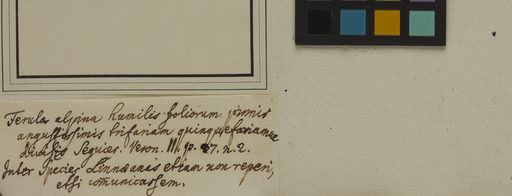 Ferula alpina humilis foliorum pinnis
angustissimis trifariam quinquefariamve
divisis Seguier. Veron. III. p. 27. n. 2.
Inter Species Linnaeanas etiam non reperi,
etsi comunicassem.